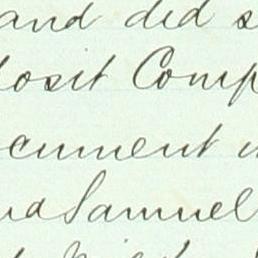 and did s
losit Comp
cument i
nd Samuel